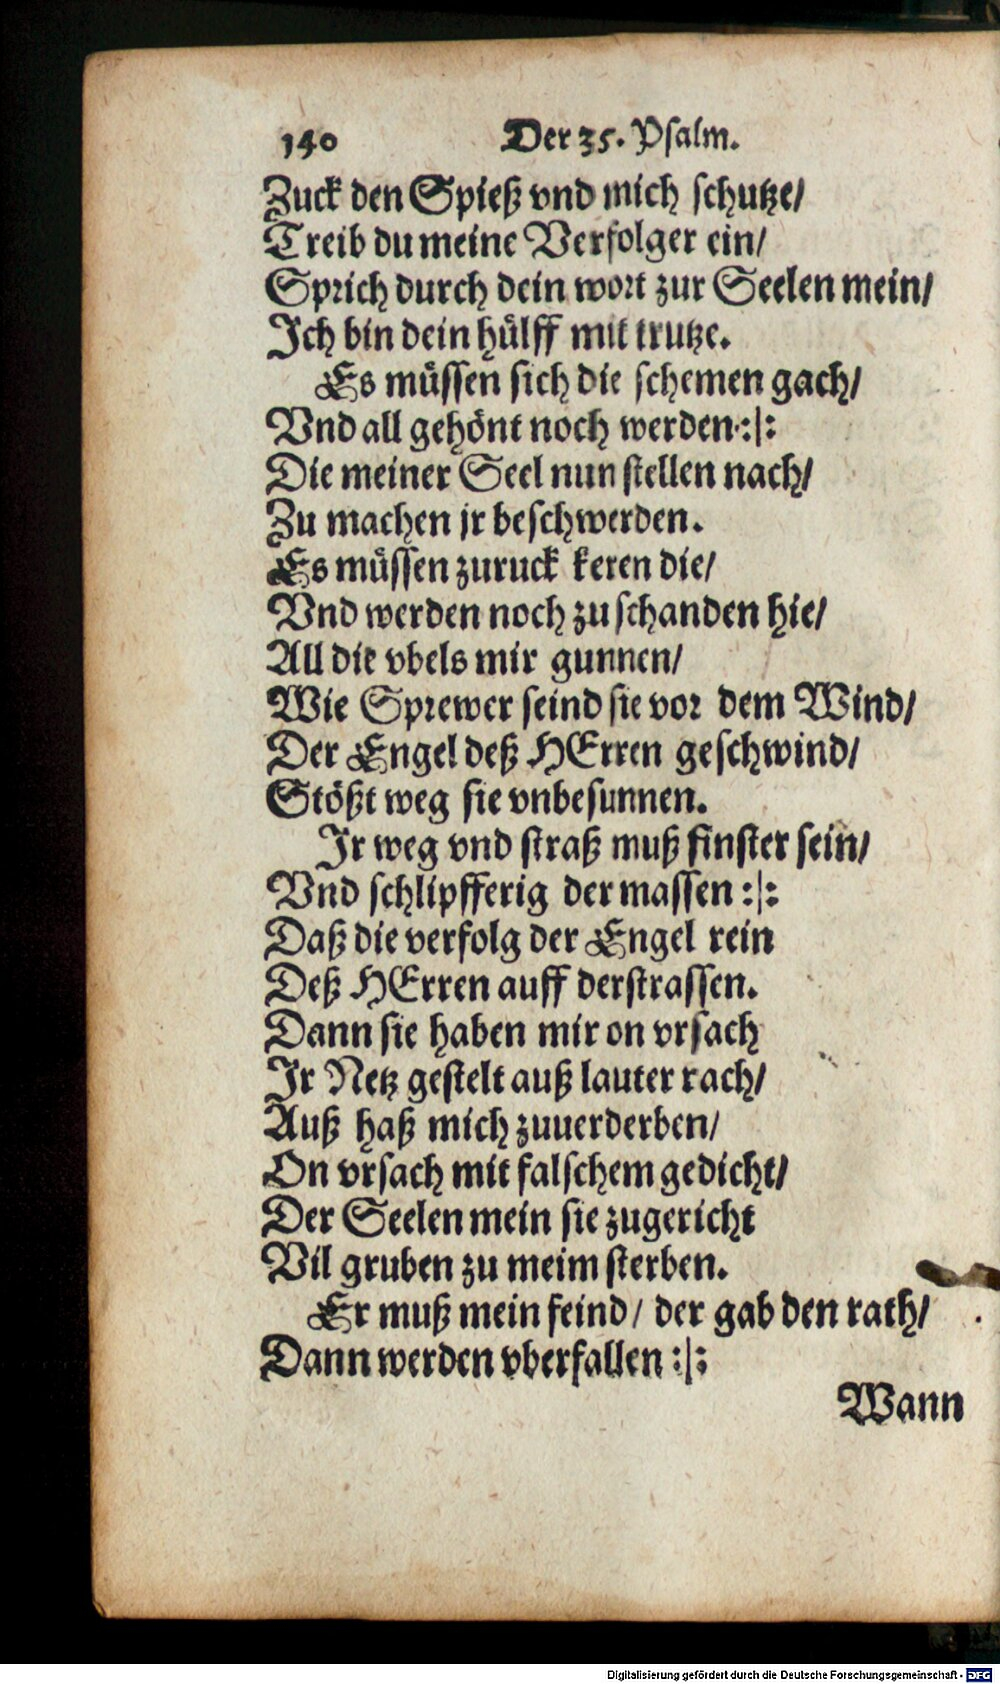 140 Der 35. Psalm.
Zuck den Spieß vnd mich schutze/
Treib du meine Verfolger ein/
Sprich durch dein wort zur Seelen mein/
Ich bin dein hülff mit trutze.
Es müssen sich die schemen gach/
Vnd all gehönt noch werden :|:
Die meiner Seel nun stellen nach/
Zu machen jr beschwerden.
Es müssen zuruck keren die/
Vnd werden noch zu schanden hie/
All die vbels mir gunnen/
Wie Sprewer seind sie vor dem Wind/
Der Engel deß HErren geschwind/
Stößt weg sie vnbesunnen.
Jr weg vnd straß muß finster sein/
Vnd schlipfferig der massen :|:
Daß die verfolg der Engel rein
Deß HErren auff der strassen.
Dann sie haben mir on vrsach
Jr Netz gestelt auß lauter rach/
Auß haß mich zuuerderben/
On vrsach mit falschem gedicht/
Der Seelen mein sie zugericht
Vil gruben zu meim sterben.
Er muß mein feind/ der gab den rath/
Dann werden vberfallen :|:
Wann
Digitalisierung gefördert durch die Deutsche Forschungsgemeinschaft - DFG